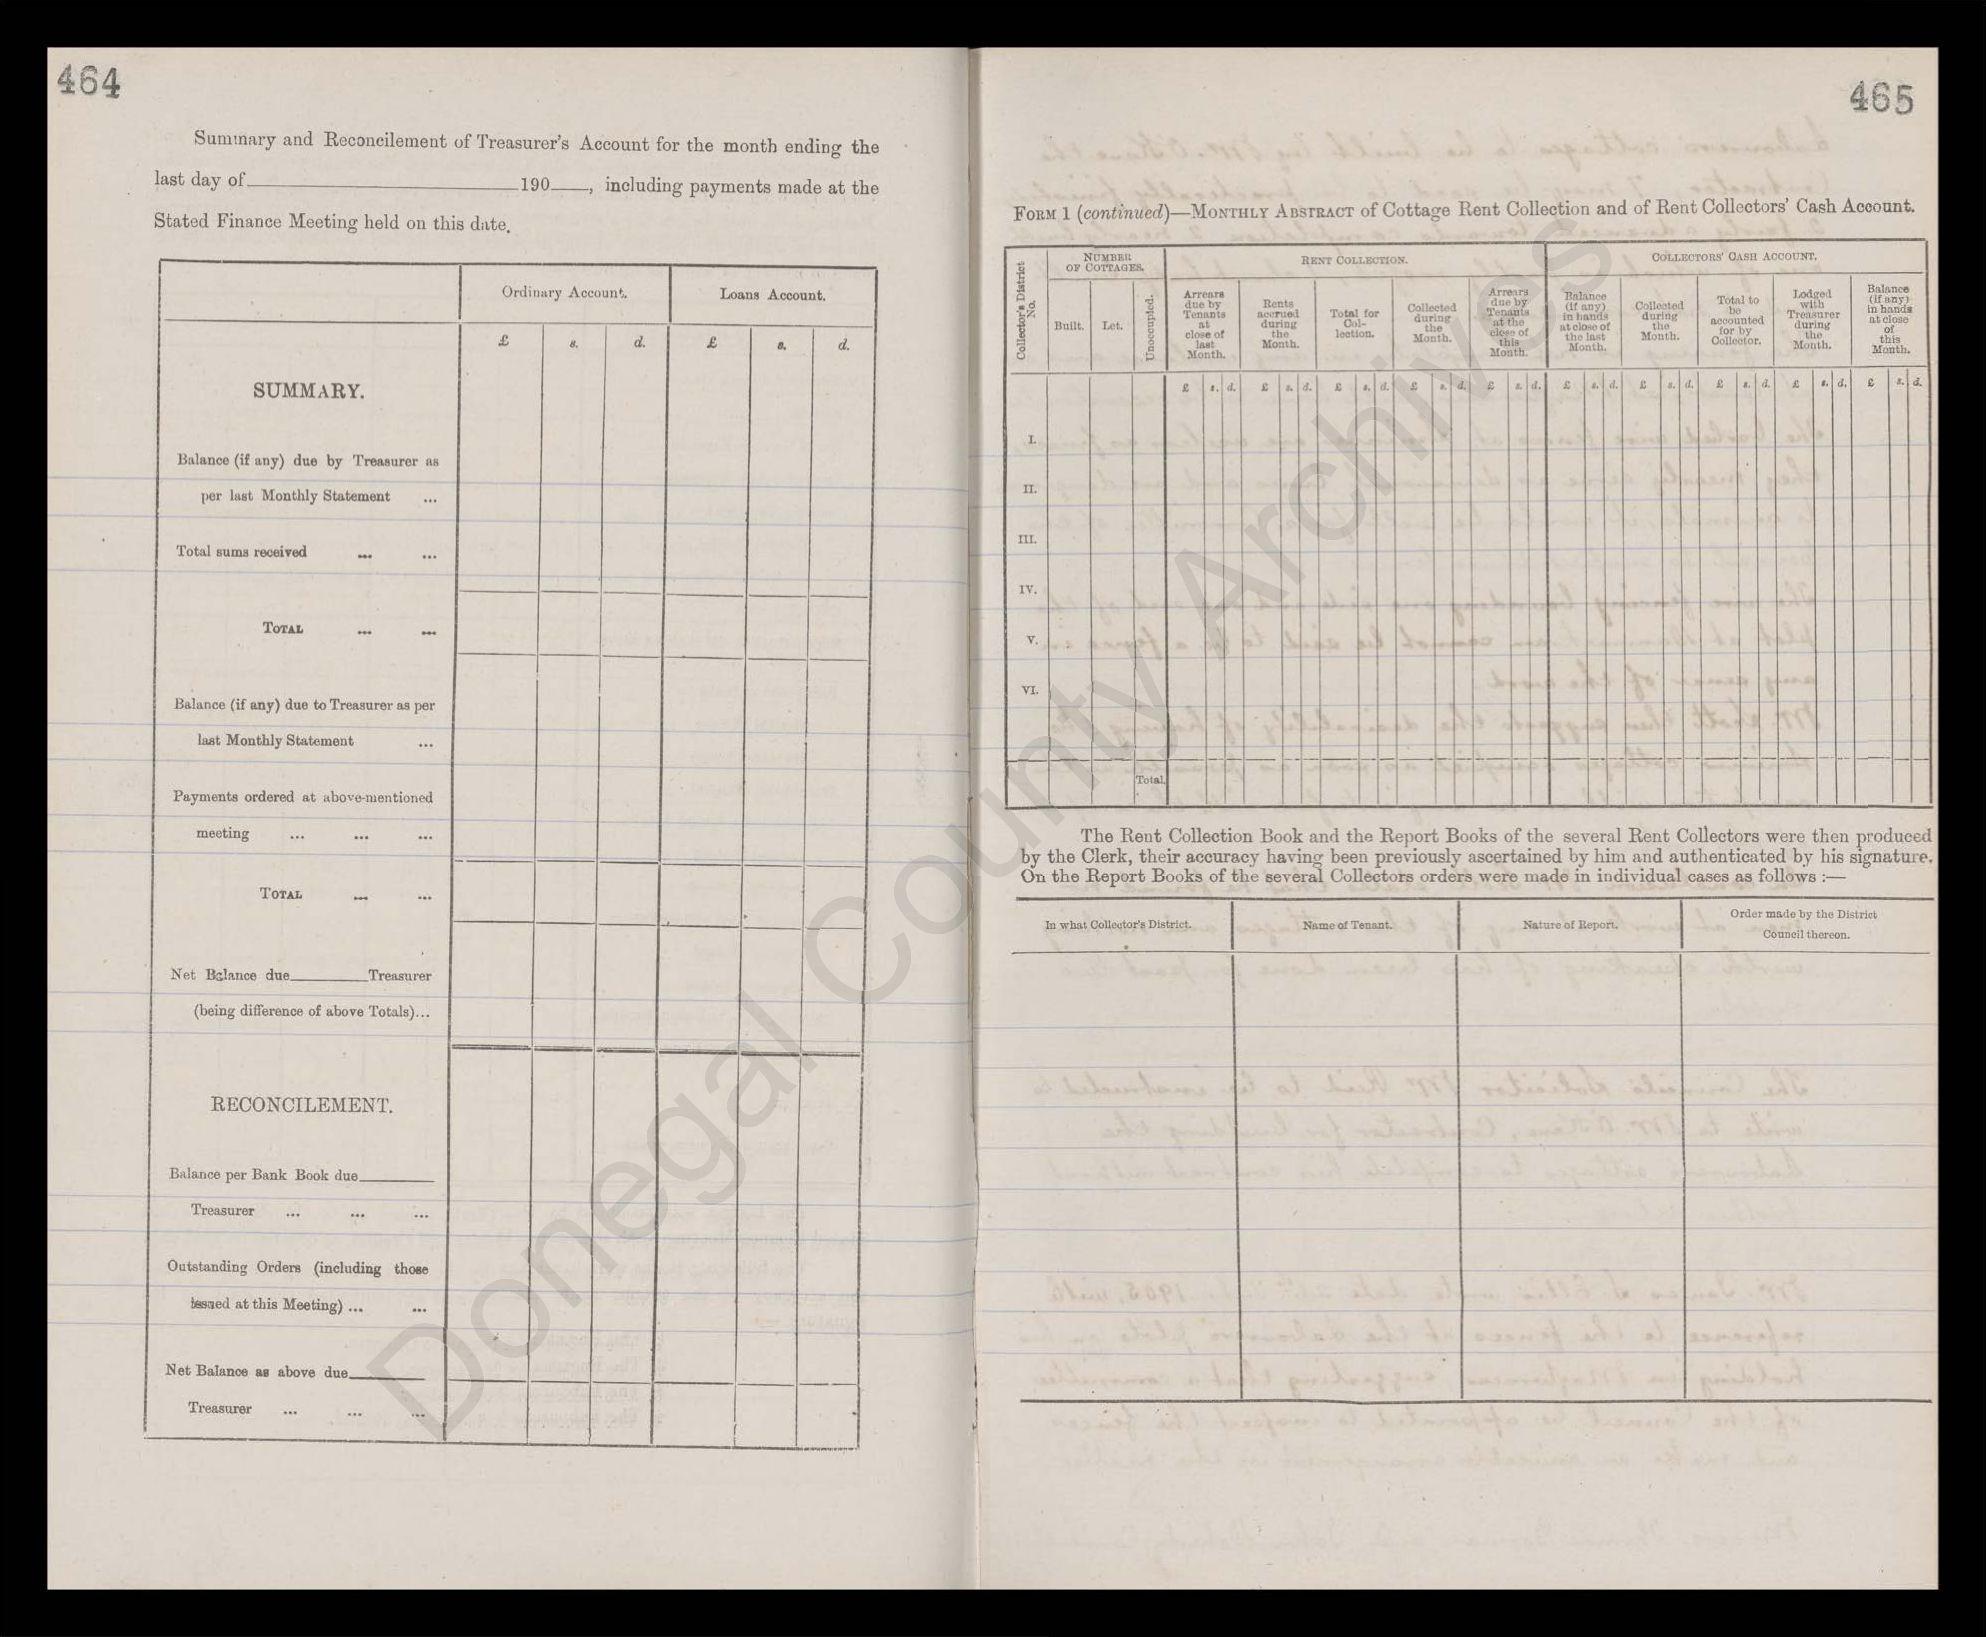 464
Summary and Reconcilement of Treasurer's Account for the month ending the
last day of 190 , including payments made at the
Stated Finance Meeting held on this date.
Ordinary Account. Loans Account.
£ s. d. £ s. d.
SUMMARY.
Balance (if any) due by Treasurer as
per last Monthly Statement ...
Total sums received ... ...
TOTAL ... ...
Balance (if any) due to Treasurer as per
last Monthly Statement ...
Payments ordered at above-mentioned
meeting ... ... ...
TOTAL ... ...
Net Balance due Treasurer
(being difference of above Totals)...
RECONCILEMENT.
Balance per Bank Book due
Treasurer ... ... ...
Outstanding Orders (including those
issued at this Meeting) ... ...
Net Balance as above due
Treasurer ... ... ...
465
FORM 1 (continued)—MONTHLY ABSTRACT of Cottage Rent Collection and of Rent Collectors' Cash Account.
Collector's District No.
NUMBER OF COTTAGES.
RENT COLLECTION.
COLLECTORS' CASH ACCOUNT.
Built.
Let.
Unoccupied.
Arrears due by Tenants at close of last Month.
Rents accrued during the Month.
Total for Col- lection.
Collected during the Month.
Arrears due by Tenants at the close of this Month.
Balance (if any) in hands at close of the last Month.
Collected during the Month.
Total to be accounted for by Collector.
Lodged with Treasurer during the Month.
Balance (if any) in hands at close of this Month.
£ s. d. £ s. d. £ s. d. £ s. d. £ s. d. £ s. d. £ s. d. £ s. d. £ s. d. £ s. d.
I.
II.
III.
IV.
V.
VI.
Total.
The Rent Collection Book and the Report Books of the several Rent Collectors were then produced
by the Clerk, their accuracy having been previously ascertained by him and authenticated by his signature.
On the Report Books of the several Collectors orders were made in individual cases as follows :—
In what Collector's District. Name of Tenant. Nature of Report. Order made by the District Council thereon.
Donegal County Archives